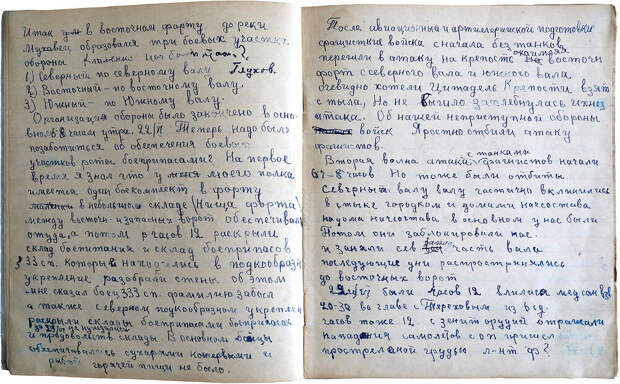 Итак в восточном форту до реки
Мухавец образовался три боевых участка
обороны
1) Северный по северному валу Глухов.
2) Восточный - по восточному валу.
3) Южный - по Южному валу.
Организация обороны было закончено в осно-
вном 8 часам утра. 22/VI Теперь надо было
позаботиться об обеспечения боевых
участков роты боеприпасами. На первое
время я знал что у моего полка
имеется один боекомплект в форту
в небольшом складе (Ниша форта)
между восточн. и запасных ворот
оттуда потом в часов 12 раскрыли
склад боепитания и склад боеприпасов
333 сп. которые находились в подкообразн
укрепление разобрали стены об этом
мне сказал боец 333 сп. фамилию забыл
а также северном подкообразном укреплен
раскрыли склады боепитания боеприпасов
и продовольств склады. В основном бойцы
обеспечивались сухарями консервами и
рыбой горячей пищи не было.
После авиационный и артиллерийской подготовки
фашистки войска сначала без танков
перешли в атаку на крепость восточн
форт с северного вала и южного вала
очевидно хотели Цитадель Крепости взять
с тыла. Но не вышло захлебнулась их
атака. Об нашей неприступной обороны
войск Яростно отбили атаку
фашистов.
Вторая волна атаки с танками фашистов начали
часов Но тоже были отбиты
Северный валу валу частично вклинились
в стыке городком и домами начсостава
но дома начсостава в основном у нас были
Потом они заблокировали нас.
и заняли сев часть вала
последующие дни распространились
до восточных ворот
22/VI были часов 12 влился медсанв
20-30 во главе с из
часов тоже 12 с зенит орудий отражали
нападения самолетов с оп пришел
прострелной грудью л-нт ф?